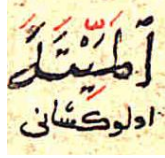 ٱلْمَيْتَةَ
اولوكسانى